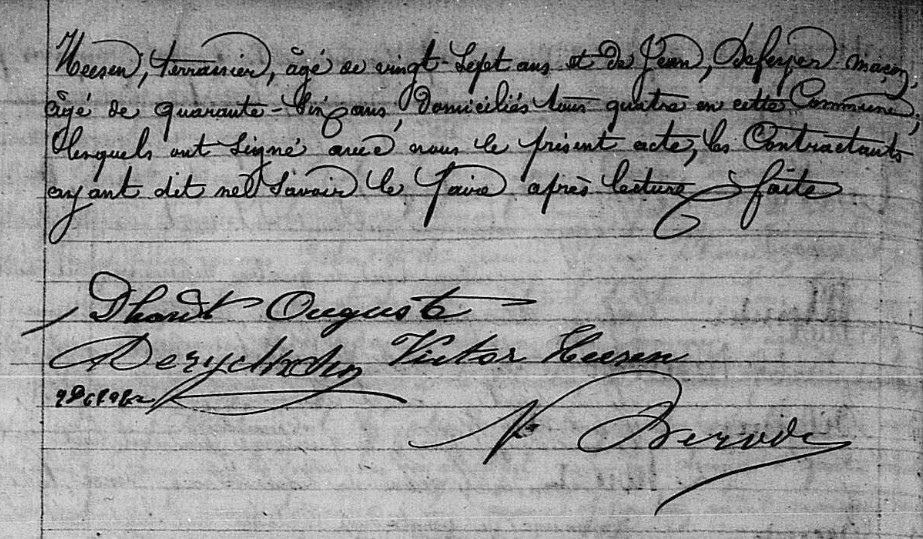 Heesen, terrassier, âgé de vingt-sept ans et de Jean, Defeyer maçon,
âgé de quarante-six ans, domiciliés tous quatre en cette Commune,
lesquels ont signé avec nous le présent acte, les Contractants
ayant dit ne savoir le faire après lecture faite
Dhondt Auguste
Deryckx Victor Heesen